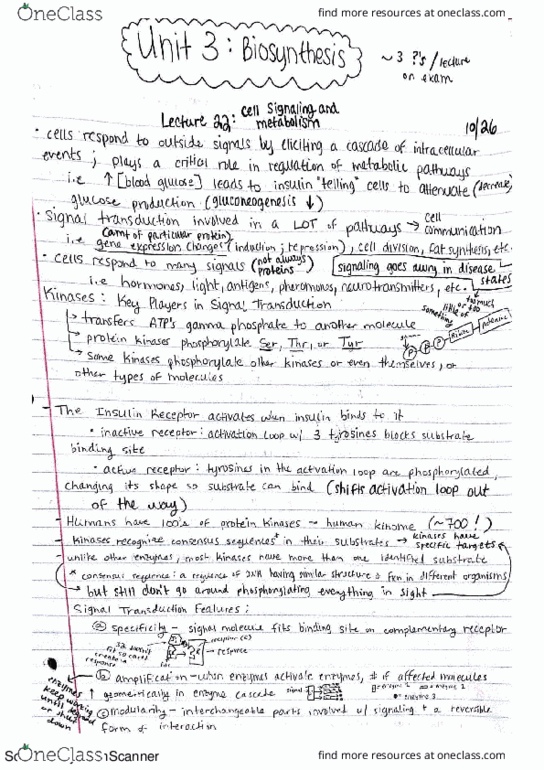 OneClass
find more resources at oneclass.com
Unit 3: Biosynthesis
~ 3 ?'s / lecture
on exam
Lecture 22: Cell Signaling and
metabolism
10/26
• cells respond to outside signals by eliciting a cascade of intracellular
events ; plays a critical role in regulation of metabolic pathways
i.e ↑ [blood glucose] leads to insulin "telling" cells to attenuate (decrease)
glucose production (gluconeogenesis ↓)
• Signal transduction involved in a LOT of pathways → cell
communication
(amt of particular protein)
i.e gene expression changes (induction ; repression), cell division, fat synthesis, etc.
• cells respond to many signals (not always
proteins)
signaling goes awry in disease
states
i.e hormones, light, antigens, pheromones, neurotransmitters, etc.
too much
or too
little of
something
Kinases: Key Players in Signal Transduction
→ transfers ATP's gamma phosphate to another molecule
P P P Ribose Adenine
→ protein kinases phosphorylate Ser, Thr, or Tyr
→ Some kinases phosphorylate other kinases or even themselves, or
other types of molecules
- The Insulin Receptor activates when insulin binds to it
• inactive receptor: activation loop w/ 3 tyrosines blocks substrate
binding site
• active receptor: tyrosines in the activation loop are phosphorylated,
changing its shape so substrate can bind (shifts activation loop out
of the way)
- Humans have 100's of protein kinases → human kinome (~700!)
- Kinases recognize consensus sequences* in their substrates → kinases have
specific targets
- unlike other enzymes, most kinases have more than one identified substrate
* consensus sequence: a sequence of DNA having similar structure & fxn in different organisms
→ but still don't go around phosphorylating everything in sight
Signal Transduction Features:
(a) specificity - signal molecule fits binding site on complementary receptor
receptor
→ response
(b) amplification - when enzymes activate enzymes, # of affected molecules
↑ geometrically in enzyme cascade
signal
enzyme 3
enzymes
keep working
until
or shut
down
(c) modularity - interchangeable parts involved w/ signaling + a reversible
form of interaction
OneClass
Scanner
find more resources at oneclass.com